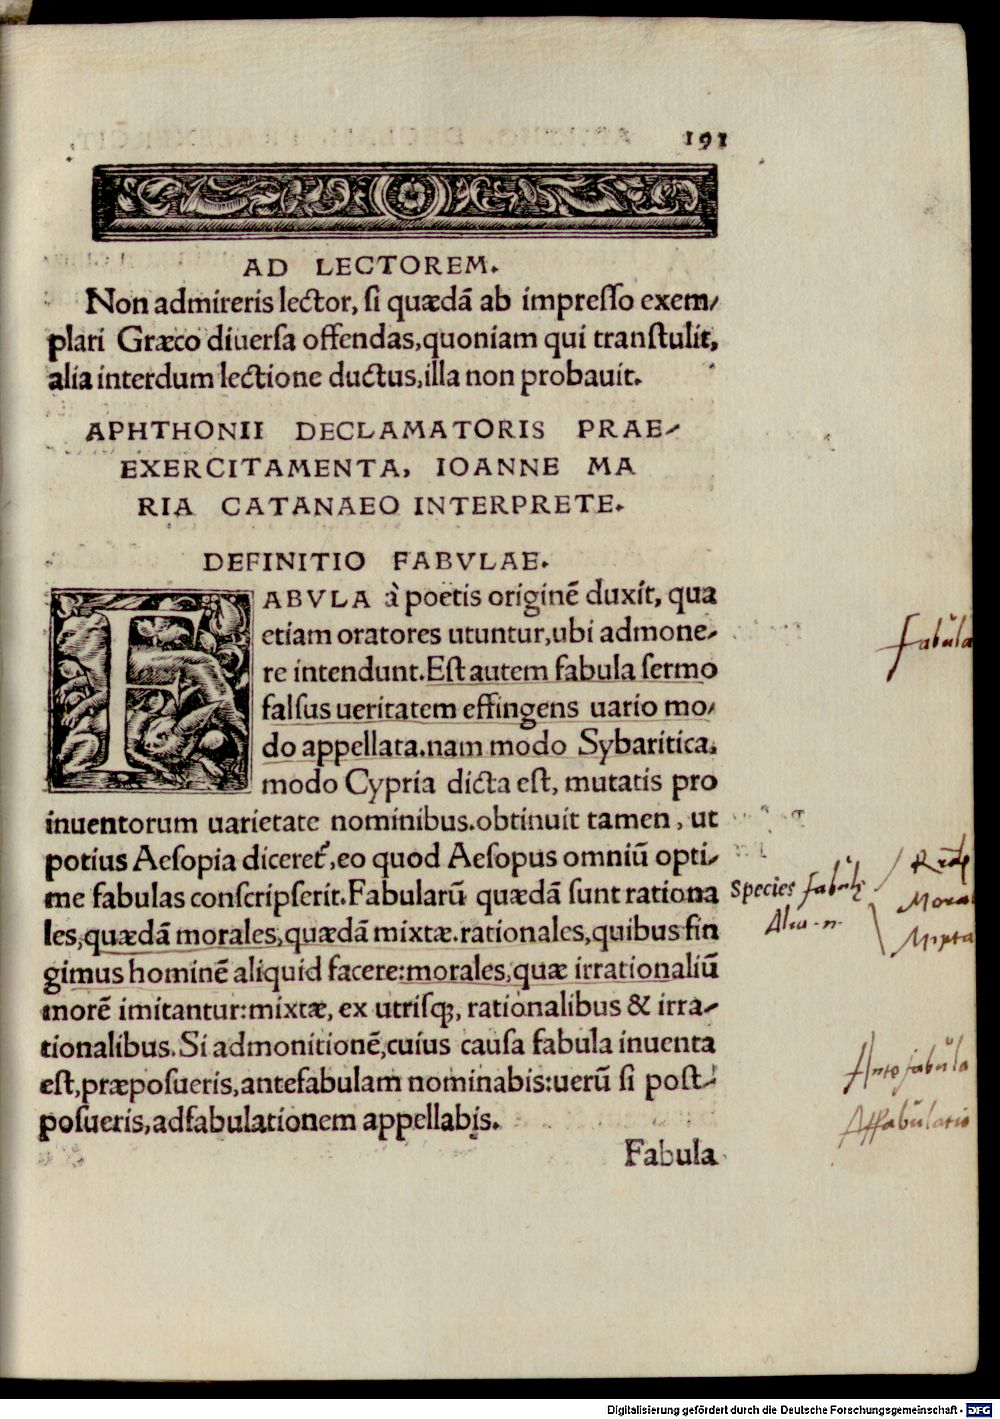 191
AD LECTOREM.
Non admireris lector, ſi quædā ab impreſſo exem⸗
plari Græco diuerſa offendas,quoniam qui tranſtulit,
alia interdum lectione ductus,illa non probauit.
APHTHONII DECLAMATORIS PRAE⸗
EXERCITAMENTA, IOANNE MA
RIA CATANAEO INTERPRETE.
DEFINITIO FABVLAE.
FABVLA à poetis originē duxit, qua
etiam oratores utuntur,ubi admone⸗
re intendunt.Eſt autem fabula ſermo
falſus ueritatem effingens uario mo⸗
do appellata.nam modo Sybaritica,
modo Cypria dicta eſt, mutatis pro
inuentorum uarietate nominibus.obtinuit tamen, ut
potius Aeſopia diceret᷑,eo quod Aeſopus omniū opti⸗
me fabulas conſcripſerit.Fabularū quædā ſunt rationa
les,quædā morales,quædā mixtæ.rationales,quibus fin
gimus hominē aliquid facere:morales,quæ irrationaliū
morē imitantur:mixtæ, ex utriſq;, rationalibus & irra⸗
tionalibus.Si admonitionē,cuius cauſa fabula inuenta
eſt,præpoſueris,antefabulam nominabis:uerū ſi poſt⸗
poſueris,adfabulationem appellabis.
Fabula
Fabŭla
Species fabŭlę
Mora
Mixta
Antefabŭla
Affabŭlatio
Digitalisierung gefördert durch die Deutsche Forschungsgemeinschaft - DFG